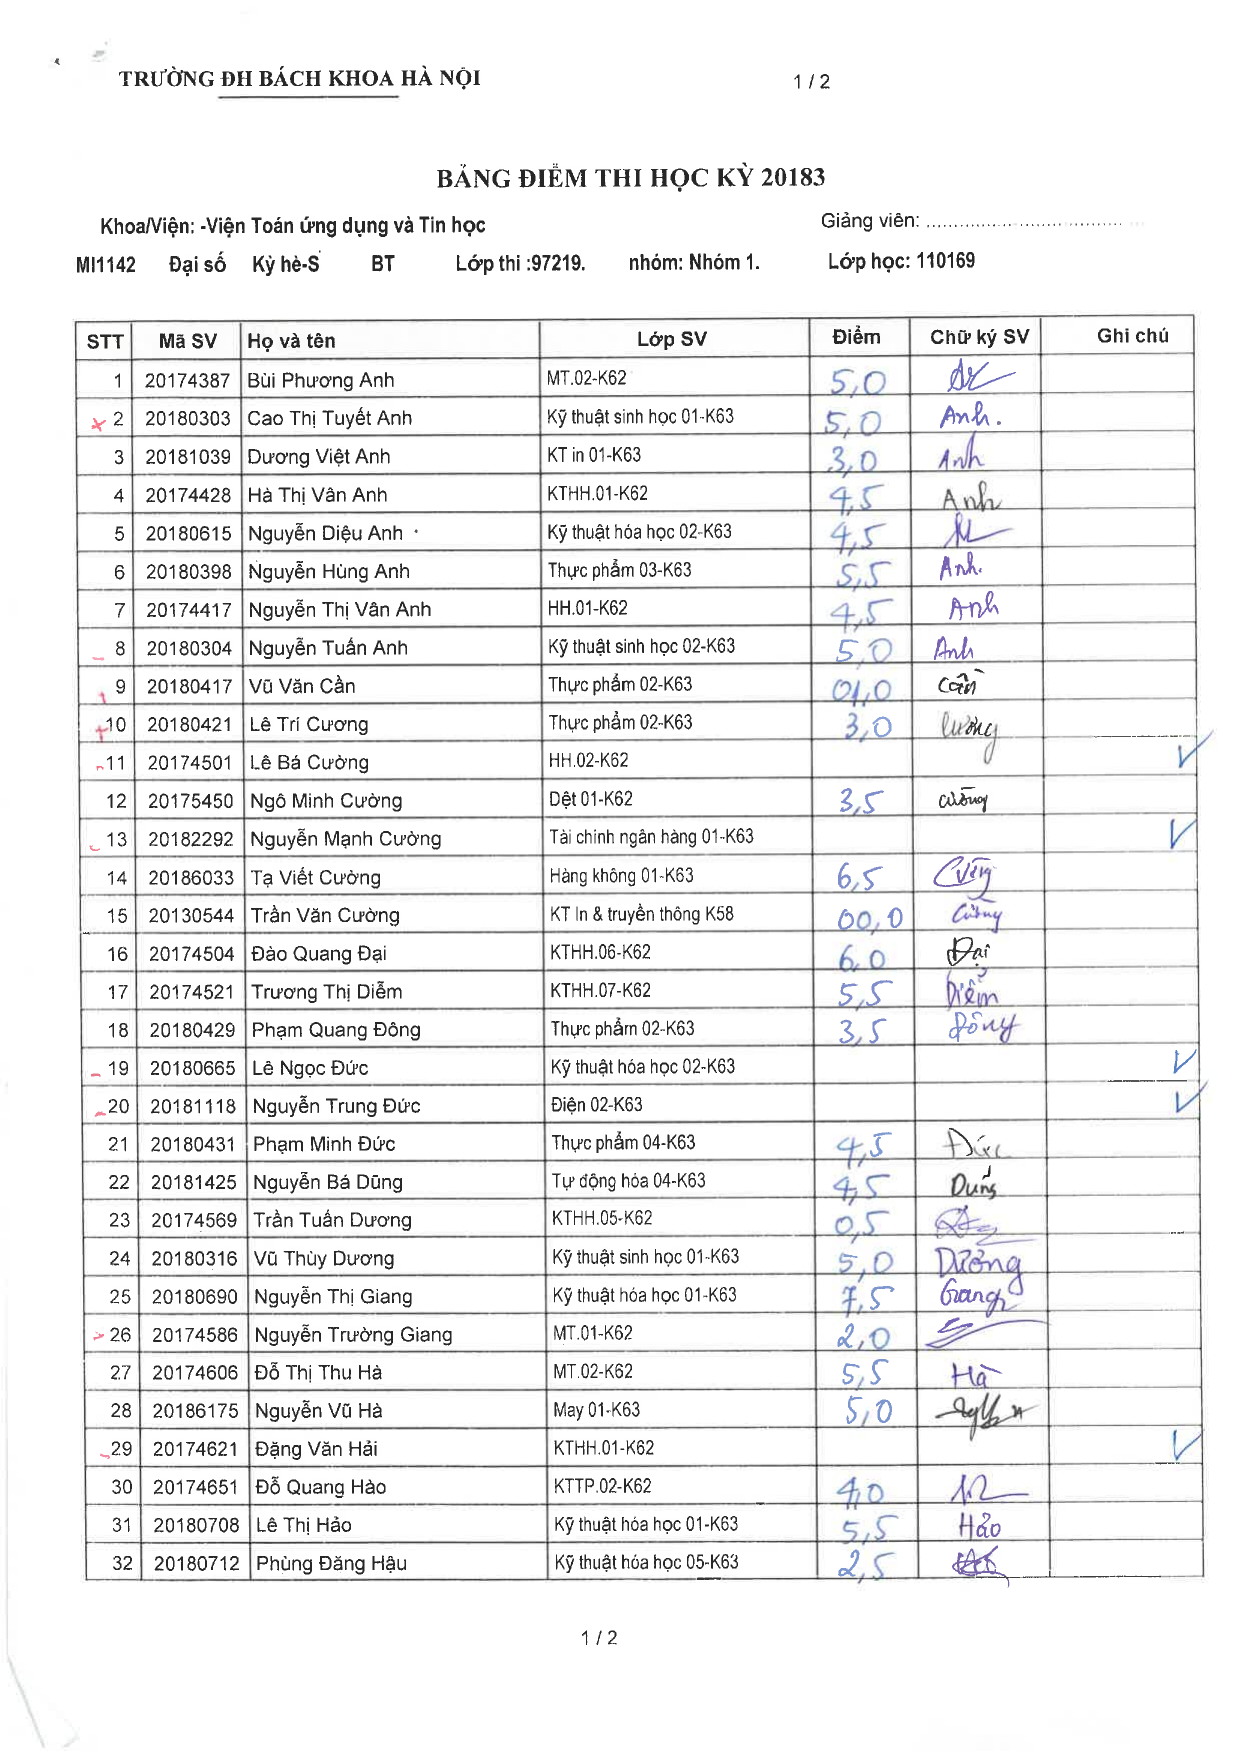 TRƯỜNG ĐH BÁCH KHOA HÀ NỘI 1 / 2
BẢNG ĐIỂM THI HỌC KỲ 20183
Khoa/Viện: -Viện Toán ứng dụng và Tin học Giảng viên: ........................................
MI1142 Đại số Kỳ hè-S BT Lớp thi :97219. nhóm: Nhóm 1. Lớp học: 110169
STT Mã SV Họ và tên Lớp SV Điểm Chữ ký SV Ghi chú
1 20174387 Bùi Phương Anh MT.02-K62 5,0
2 20180303 Cao Thị Tuyết Anh Kỹ thuật sinh học 01-K63 5,0 Anh.
3 20181039 Dương Việt Anh KT in 01-K63 3,0 Anh
4 20174428 Hà Thị Vân Anh KTHH.01-K62 4,5 Anh
5 20180615 Nguyễn Diệu Anh Kỹ thuật hóa học 02-K63 4,5
6 20180398 Nguyễn Hùng Anh Thực phẩm 03-K63 5,5 Anh.
7 20174417 Nguyễn Thị Vân Anh HH.01-K62 4,5 Anh
8 20180304 Nguyễn Tuấn Anh Kỹ thuật sinh học 02-K63 5,0 Anh
9 20180417 Vũ Văn Cần Thực phẩm 02-K63 01,0 Cần
10 20180421 Lê Trí Cương Thực phẩm 02-K63 3,0 Cương
11 20174501 Lê Bá Cường HH.02-K62 ✓
12 20175450 Ngô Minh Cường Dệt 01-K62 3,5 Cường
13 20182292 Nguyễn Mạnh Cường Tài chính ngân hàng 01-K63 ✓
14 20186033 Tạ Viết Cường Hàng không 01-K63 6,5
15 20130544 Trần Văn Cường KT In & truyền thông K58 00,0 Cường
16 20174504 Đào Quang Đại KTHH.06-K62 6,0 Đại
17 20174521 Trương Thị Diễm KTHH.07-K62 5,5 Diễm
18 20180429 Phạm Quang Đông Thực phẩm 02-K63 3,5 Đông
19 20180665 Lê Ngọc Đức Kỹ thuật hóa học 02-K63 ✓
20 20181118 Nguyễn Trung Đức Điện 02-K63 ✓
21 20180431 Phạm Minh Đức Thực phẩm 04-K63 4,5 Đức
22 20181425 Nguyễn Bá Dũng Tự động hóa 04-K63 4,5 Dũng
23 20174569 Trần Tuấn Dương KTHH.05-K62 0,5
24 20180316 Vũ Thùy Dương Kỹ thuật sinh học 01-K63 5,0 Dương
25 20180690 Nguyễn Thị Giang Kỹ thuật hóa học 01-K63 7,5 Giang
26 20174586 Nguyễn Trường Giang MT.01-K62 2,0
27 20174606 Đỗ Thị Thu Hà MT.02-K62 5,5 Hà
28 20186175 Nguyễn Vũ Hà May 01-K63 5,0
29 20174621 Đặng Văn Hải KTHH.01-K62 ✓
30 20174651 Đỗ Quang Hào KTTP.02-K62 4,0
31 20180708 Lê Thị Hảo Kỹ thuật hóa học 01-K63 5,5 Hảo
32 20180712 Phùng Đăng Hậu Kỹ thuật hóa học 05-K63 2,5
1 / 2